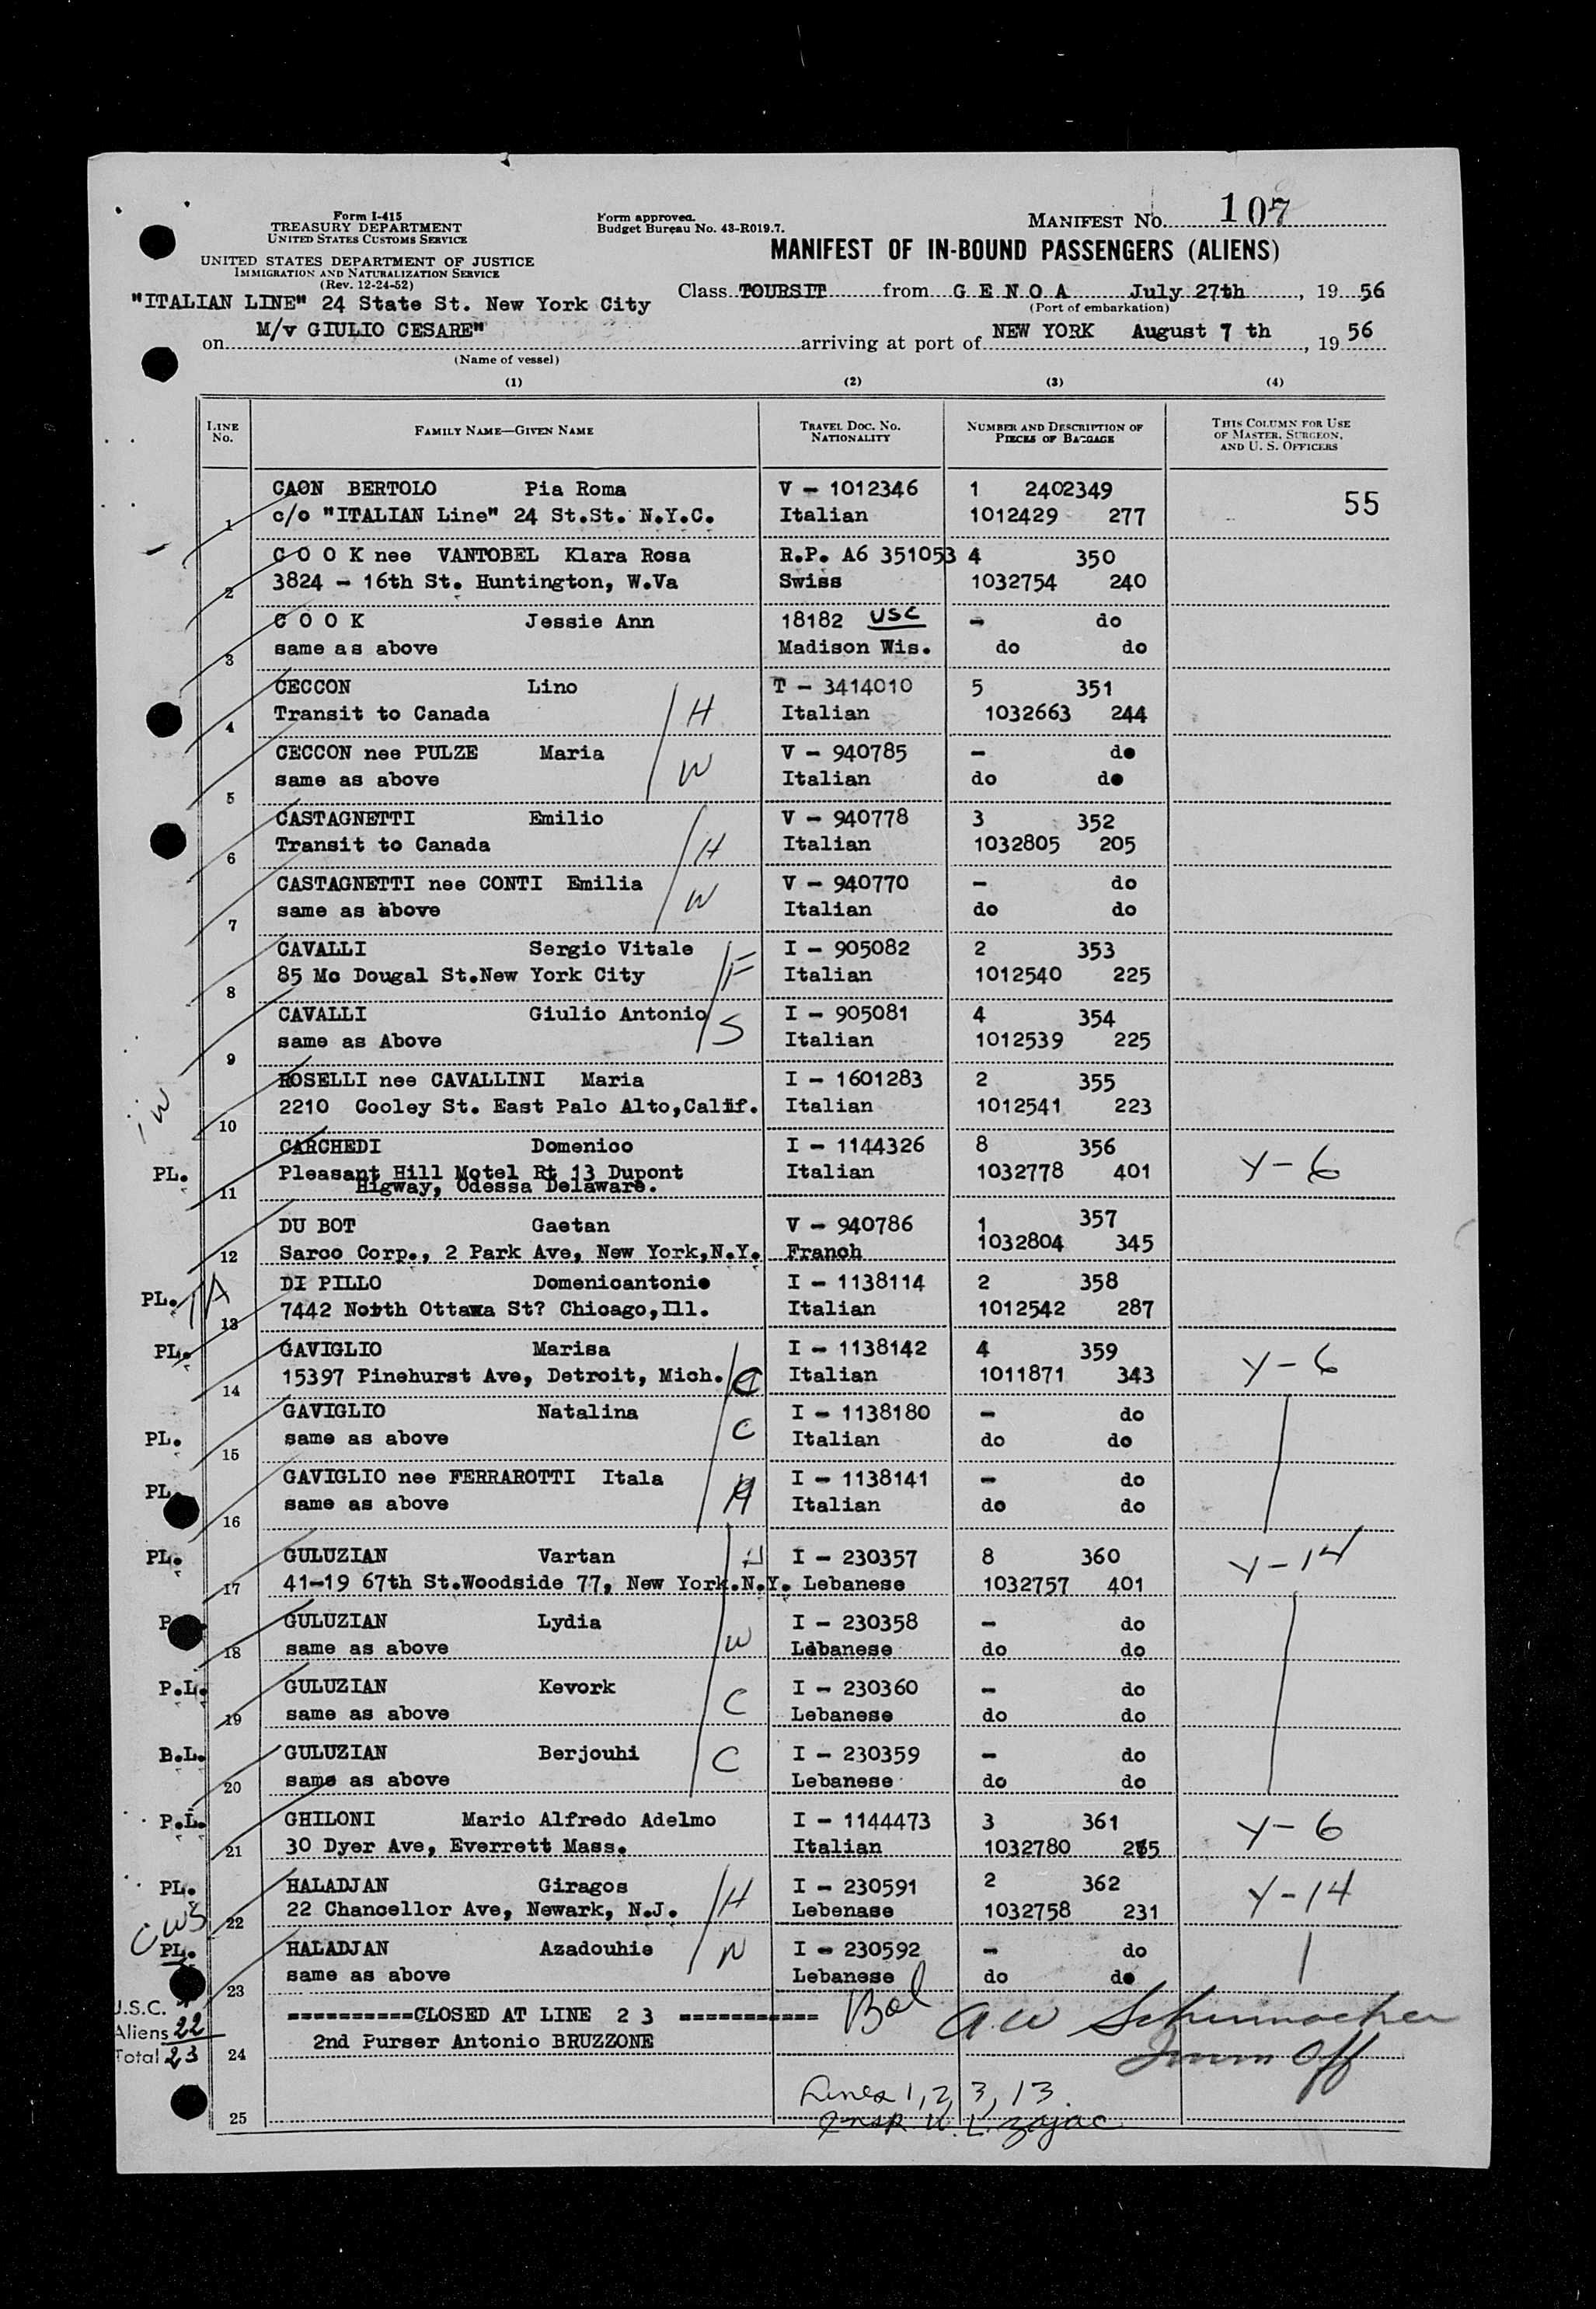 Form I-415
TREASURY DEPARTMENT
UNITED STATES CUSTOMS SERVICE
UNITED STATES DEPARTMENT OF JUSTICE
IMMIGRATION AND NATURALIZATION SERVICE
(Rev. 12-24-52)
Form approved.
Budget Bureau No. 43-R019.7.
MANIFEST NO. 107
MANIFEST OF IN-BOUND PASSENGERS (ALIENS)
"ITALIAN LINE" 24 State St. New York City
Class TOURSIT from G E N O A July 27th, 19 56
(Port of embarkation)
on M/v GIULIO CESARE" arriving at port of NEW YORK August 7 th, 19 56
(Name of vessel)
(1) (2) (3) (4)
LINE NO. FAMILY NAME—GIVEN NAME TRAVEL DOC. NO. NATIONALITY NUMBER AND DESCRIPTION OF PIECES OF BAGGAGE THIS COLUMN FOR USE OF MASTER, SURGEON, AND U. S. OFFICERS
CAON BERTOLO Pia Roma V - 1012346 1 2402349 55
1 c/o "ITALIAN Line" 24 St.St. N.Y.C. Italian 1012429 277
C O O K nee VANTOBEL Klara Rosa R.P. A6 351053 4 350
2 3824 - 16th St. Huntington, W.Va Swiss 1032754 240
C O O K Jessie Ann 18182 USC - do
3 same as above Madison Wis. do do
CECCON Lino T - 3414010 5 351
4 Transit to Canada H Italian 1032663 244
CECCON nee PULZE Maria V - 940785 - do
5 same as above W Italian do do
CASTAGNETTI Emilio V - 940778 3 352
6 Transit to Canada H Italian 1032805 205
CASTAGNETTI nee CONTI Emilia V - 940770 - do
7 same as above W Italian do do
CAVALLI Sergio Vitale I - 905082 2 353
8 85 Mc Dougal St.New York City F Italian 1012540 225
CAVALLI Giulio Antonio I - 905081 4 354
9 same as Above S Italian 1012539 225
ROSELLI nee CAVALLINI Maria I - 1601283 2 355
10 2210 Cooley St. East Palo Alto,Calif. Italian 1012541 223
CARCHEDI Domenico I - 1144326 8 356
PL. 11 Pleasant Hill Motel Rt 13 Dupont Italian 1032778 401 Y-6
Higway, Odessa Delaware.
DU BOT Gaetan V - 940786 1 357
12 Sarco Corp., 2 Park Ave, New York,N.Y. Franch 1032804 345
PL. DI PILLO Domenicantonio I - 1138114 2 358
13 7442 North Ottawa St? Chicago,Ill. Italian 1012542 287
PL. GAVIGLIO Marisa I - 1138142 4 359
14 15397 Pinehurst Ave, Detroit, Mich. C Italian 1011871 343 Y-6
GAVIGLIO Natalina I - 1138180 - do
PL. 15 same as above C Italian do do
PL. GAVIGLIO nee FERRAROTTI Itala I - 1138141 - do
16 same as above Italian do do
PL. GULUZIAN Vartan H I - 230357 8 360 Y-14
17 41-19 67th St.Woodside 77, New York.N.Y. Lebanese 1032757 401
GULUZIAN Lydia I - 230358 - do
18 same as above W Lebanese do do
P.L. GULUZIAN Kevork I - 230360 - do
19 same as above C Lebanese do do
B.L. GULUZIAN Berjouhi C I - 230359 - do
20 same as above Lebanese do do
P.L. GHILONI Mario Alfredo Adelmo I - 1144473 3 361 Y-6
21 30 Dyer Ave, Everrett Mass. Italian 1032780
PL. HALADJAN Giragos H I - 230591 2 362 Y-14
22 22 Chancellor Ave, Newark, N.J. Lebenase 1032758 231
PL. HALADJAN Azadouhie W I - 230592 - do
23 same as above Lebanese do do
U.S.C. ==========CLOSED AT LINE 2 3 ===========
Aliens 22 2nd Purser Antonio BRUZZONE A.W Schumacher
Total 23 24 Imm Off
Lines 1, 2, 3, 13
25 Insp. W. L. Zajac